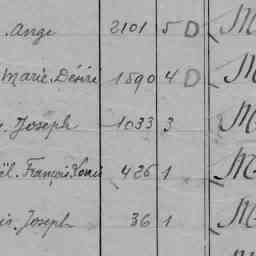 Ange 2101 5 D M
Marie Désiré 1890 4 D M
Joseph 1033 3 M
François Louis 426 1 M
Joseph 36 1 M